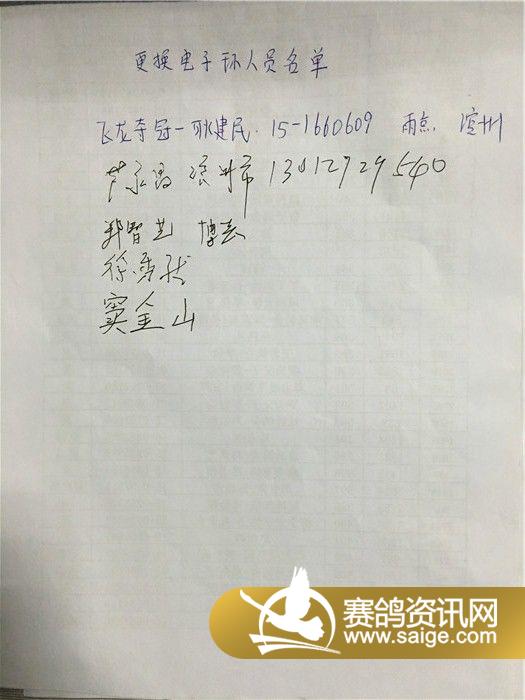 更换电子环人员名单
飞龙夺冠-耿建民. 15-1660609 雨点. 滨州
13012729540
郑智艺 博志
徐
窦金山
赛鸽资讯网
www.saige.com